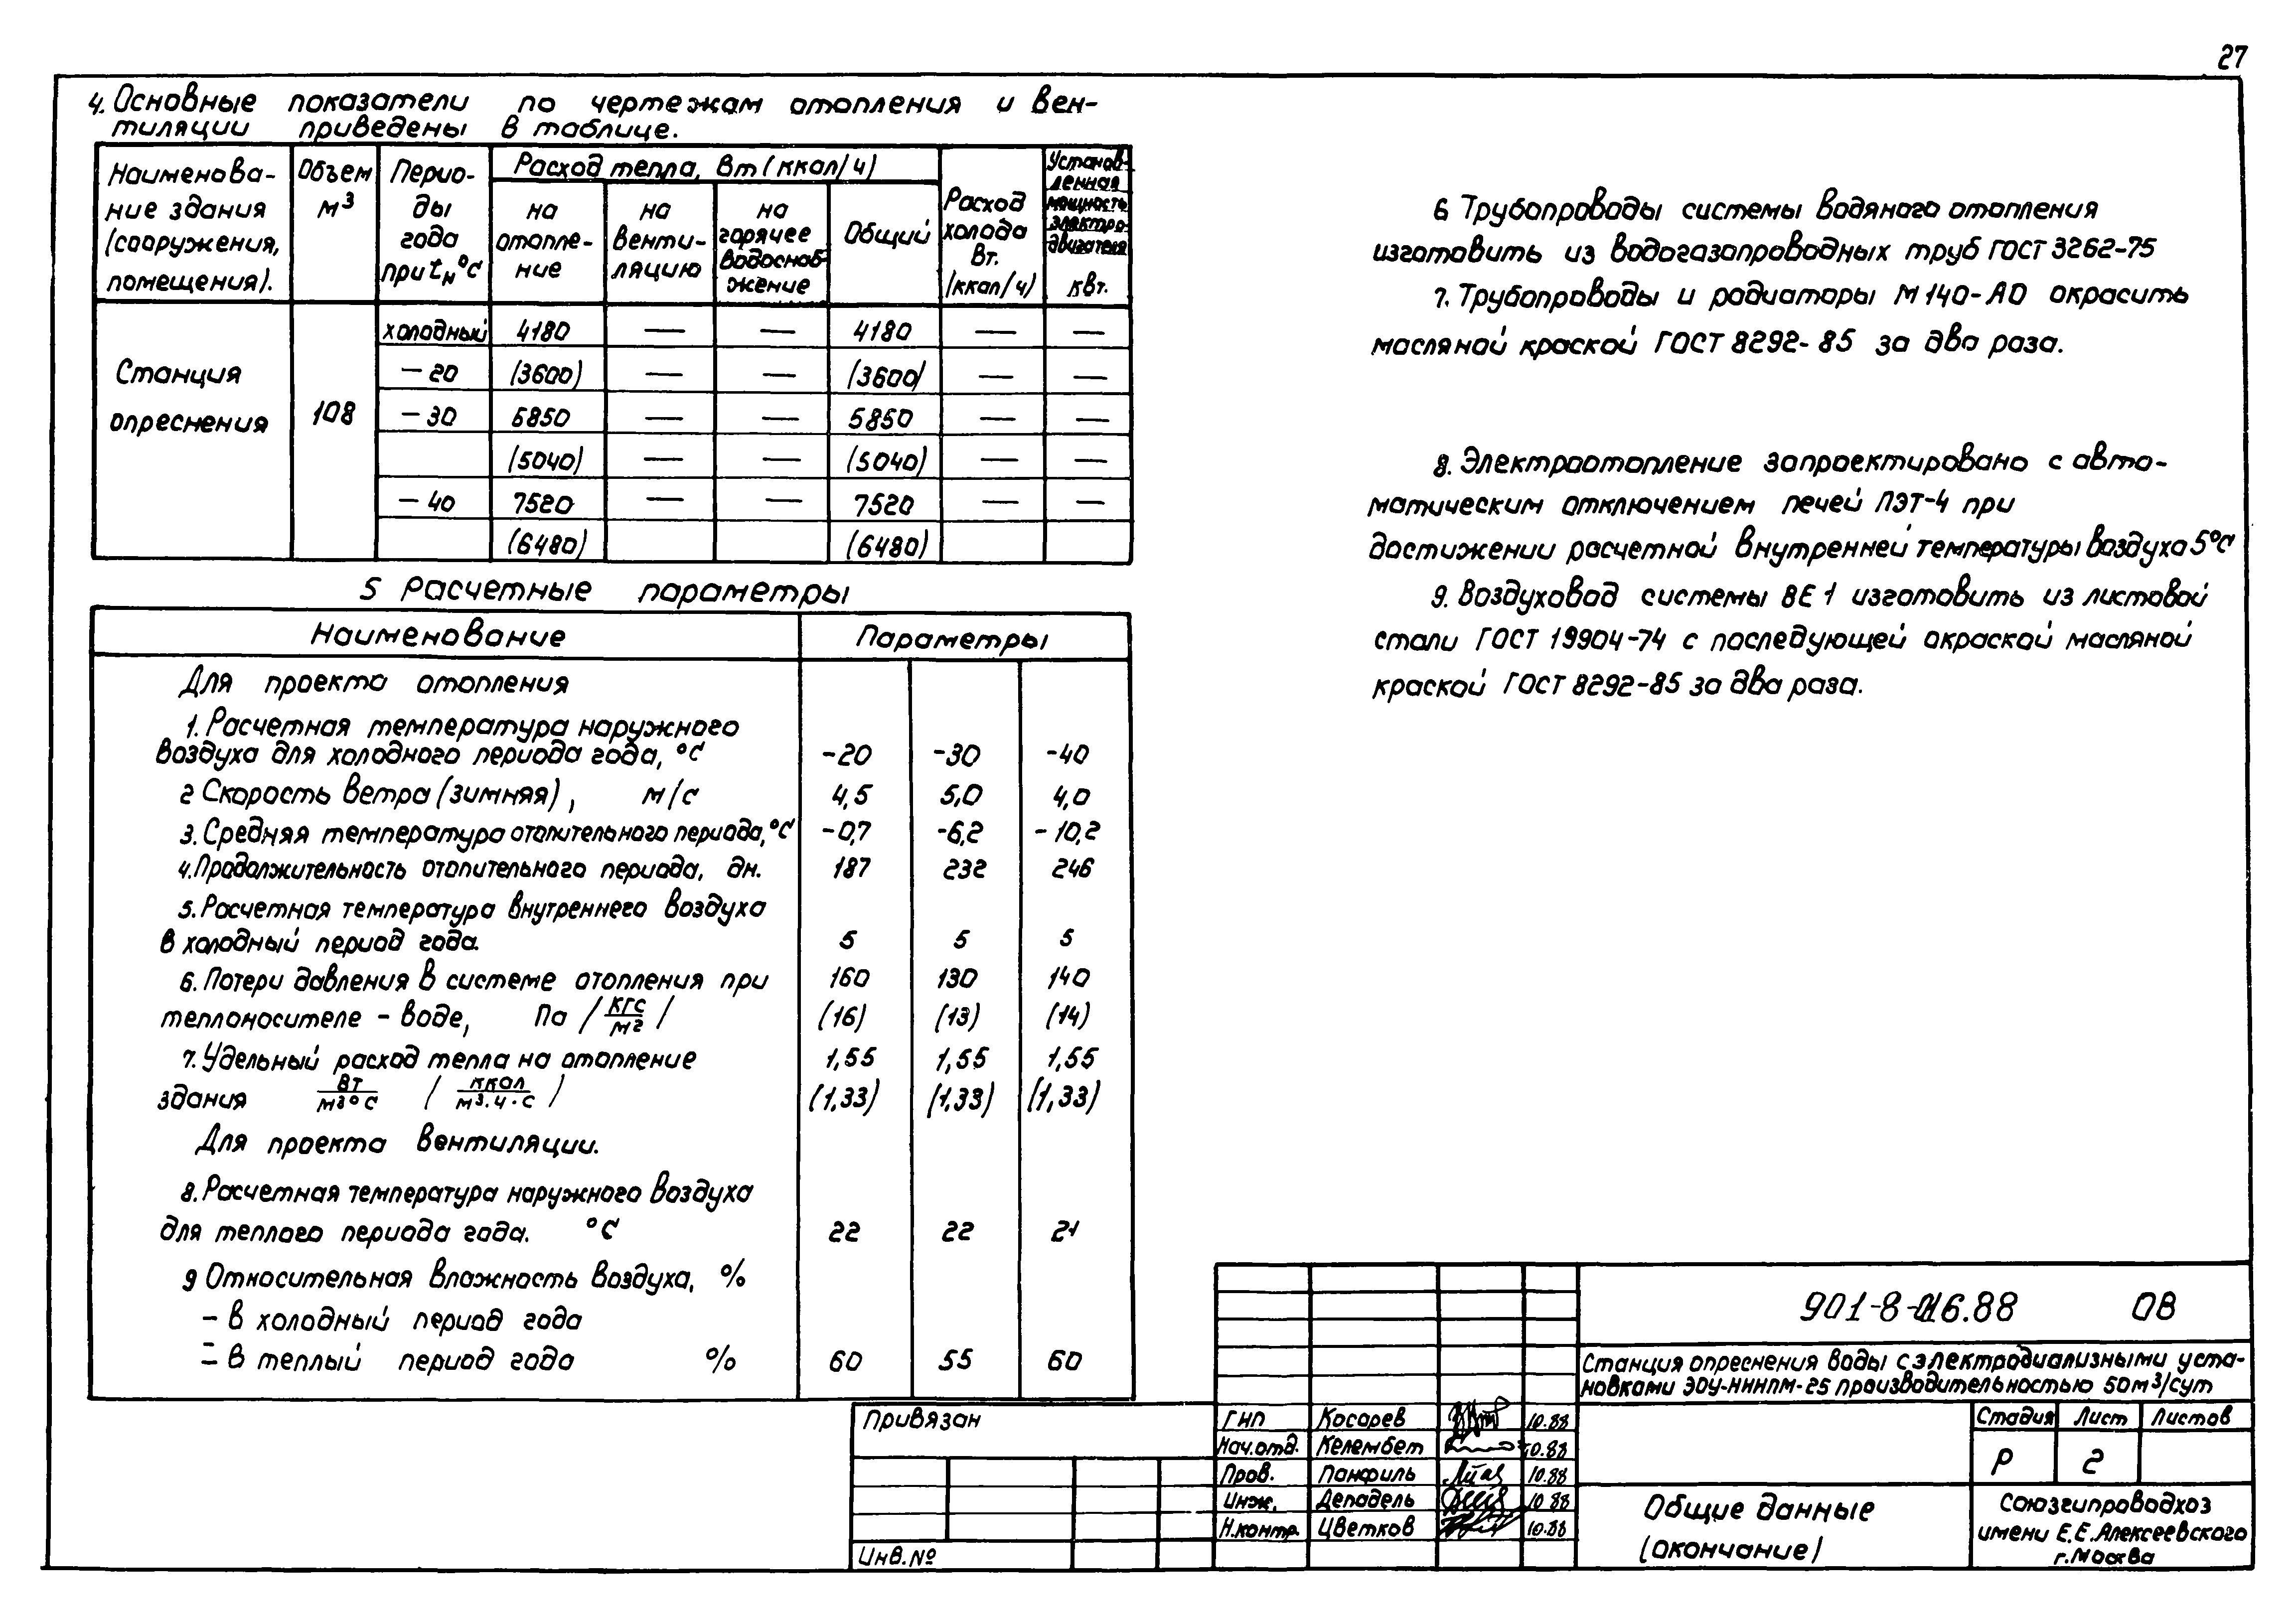 27
4. Основные показатели по чертежам отопления и вен-
тиляции приведены в таблице.
Наименова-
ние здания
(сооружения,
помещения).
Объем
м³
Перио-
ды
года
при tн °С
Расход тепла, Вт (ккал/ч)
на
отопле-
ние
на
венти-
ляцию
на
горячее
водоснаб-
жение
Общий
Расход
холода
Вт.
(ккал/ч)
Установ-
ленная
мощность
электро-
двигателя
квт.
Станция
опреснения
108
холодный 4180 — — 4180 — —
-20 (3600) — — (3600) — —
-30 5850 — — 5850 — —
(5040) — — (5040) — —
-40 7520 — — 7520 — —
(6480) (6480)
5 Расчетные параметры
Наименование Параметры
Для проекта отопления
1. Расчетная температура наружного
воздуха для холодного периода года, °С -20 -30 -40
2 Скорость ветра (зимняя), м/с 4,5 5,0 4,0
3. Средняя температура отопительного периода, °С -0,7 -6,2 -10,2
4. Продолжительность отопительного периода, дн. 187 232 246
5. Расчетная температура внутреннего воздуха
в холодный период года. 5 5 5
6. Потери давления в системе отопления при 160 130 140
теплоносителе - воде, Па /кгс/м²/ (16) (13) (14)
7. Удельный расход тепла на отопление 1,55 1,55 1,55
здания Вт/м³°С (ккал/м³·ч·С) (1,33) (1,33) (1,33)
Для проекта вентиляции.
8. Расчетная температура наружного воздуха
для теплого периода года. °С 22 22 21
9 Относительная влажность воздуха, %
- в холодный период года
- в теплый период года % 60 55 60
6 Трубопроводы системы водяного отопления
изготовить из водогазопроводных труб ГОСТ 3262-75
7. Трубопроводы и радиаторы М140-АО окрасить
масляной краской ГОСТ 8292-85 за два раза.
8. Электроотопление запроектировано с авто-
матическим отключением печей ПЭТ-4 при
достижении расчетной внутренней температуры воздуха 5°С
9. Воздуховод системы ВЕ1 изготовить из листовой
стали ГОСТ 19904-74 с последующей окраской масляной
краской ГОСТ 8292-85 за два раза.
901-8-016.88 ОВ
Станция опреснения воды с электродиализными уста-
новками ЭДУ-НИИПМ-25 производительностью 50м³/сут
Привязан
Инв.№
ГИП Косарев 10.88
Нач.отд. Келембет 10.88
Пров. Панфиль 10.88
Инж. Депадель 10 88
Н.контр. Цветков 10.88
Стадия Лист Листов
Р 2
Общие данные
(окончание)
Союзгипроводхоз
имени Е.Е.Алексеевского
г.Москва